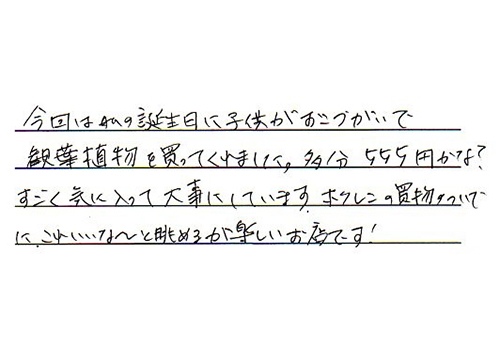 今回は私の誕生日に子供がおこづかいで
観葉植物を買ってくれました。多分555円かな？
すごく気に入って大事にしています。ホクレンの買物ついで
に、これいいな〜と眺めるが楽しいお店です！